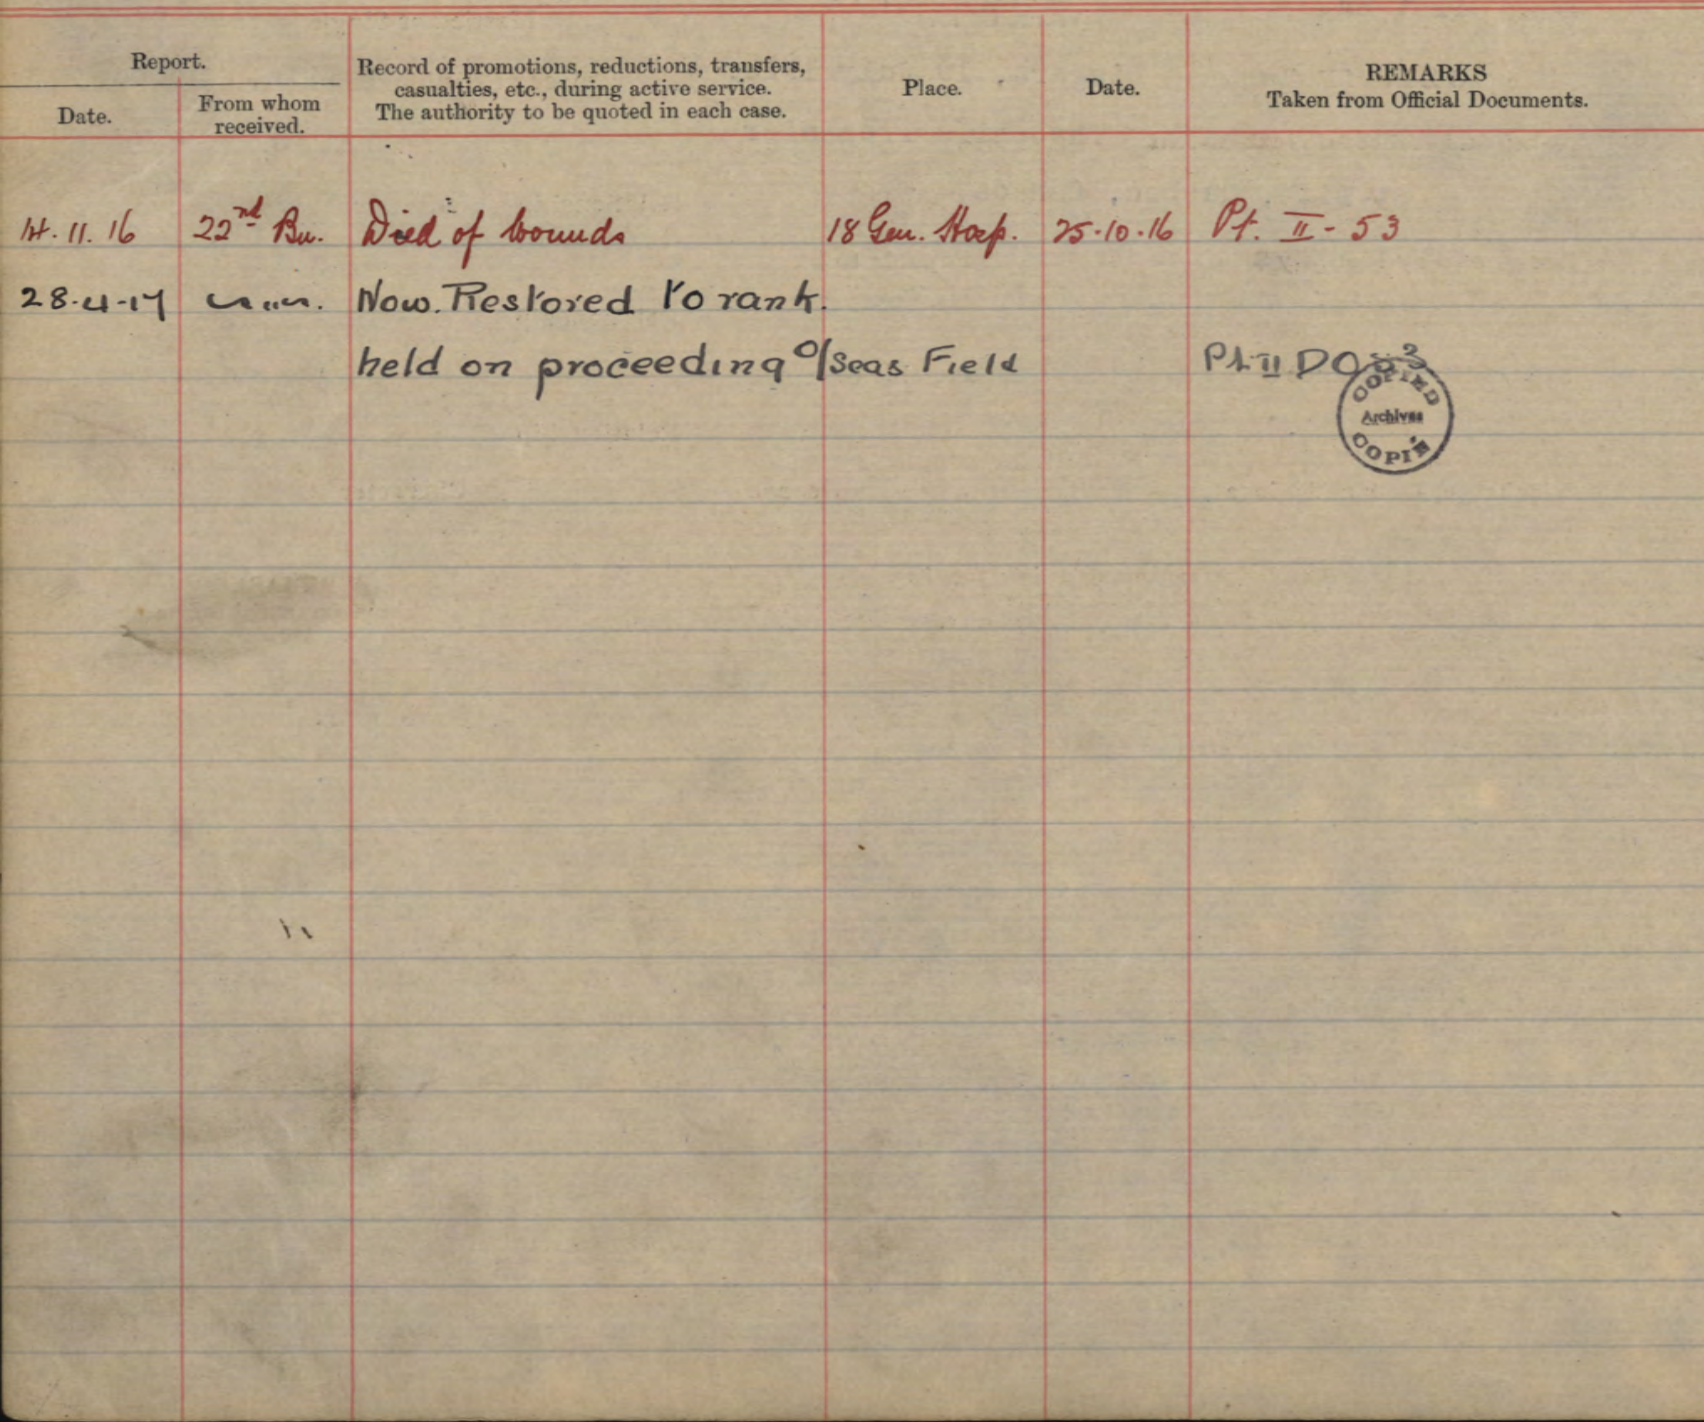 Report.
Date.
From whom
received.
Record of promotions, reductions, transfers,
casualties, etc., during active service.
The authority to be quoted in each case.
Place.
Date.
REMARKS
Taken from Official Documents.
14. 11. 16 22nd Bn. Died of wounds 18 Gen. Hosp. 25-10-16 Pt. II - 53
28-4-17 Now. Restored to rank.
held on proceeding O/Seas Field Pt II DO 53
COPIED
Archives
COPIÉ